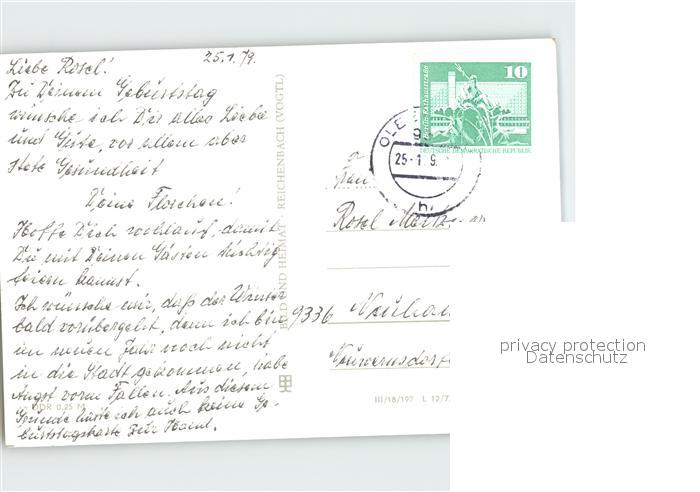 25.1.79.
Liebe Rosel!
Zu Deinem Geburtstag
wünsche ich Dir alles Liebe
und Gute, vor allem aber
stete Gesundheit
Deine Floschen!
Hoffe Dich wohlauf, damit
Du mit Deinen Gästen tüchtig
feiern kannst.
Ich wünsche mir, daß der Winter
bald vorübergeht, denn ich bin
im neuen Jahr noch nicht
in die Stadt gekommen, habe
Angst vorm Fallen. Aus diesem
Grunde hatte ich auch keine Ge-
burtstagskarte
DDR 0,25 M
BILD UND HEIMAT REICHENBACH (VOGTL)
10
Berlin, Rathausstraße
DEUTSCHE DEMOKRATISCHE REPUBLIK
OLE
25-1
Rosel
9336
III/18/197 L 12/7
privacy protection
Datenschutz